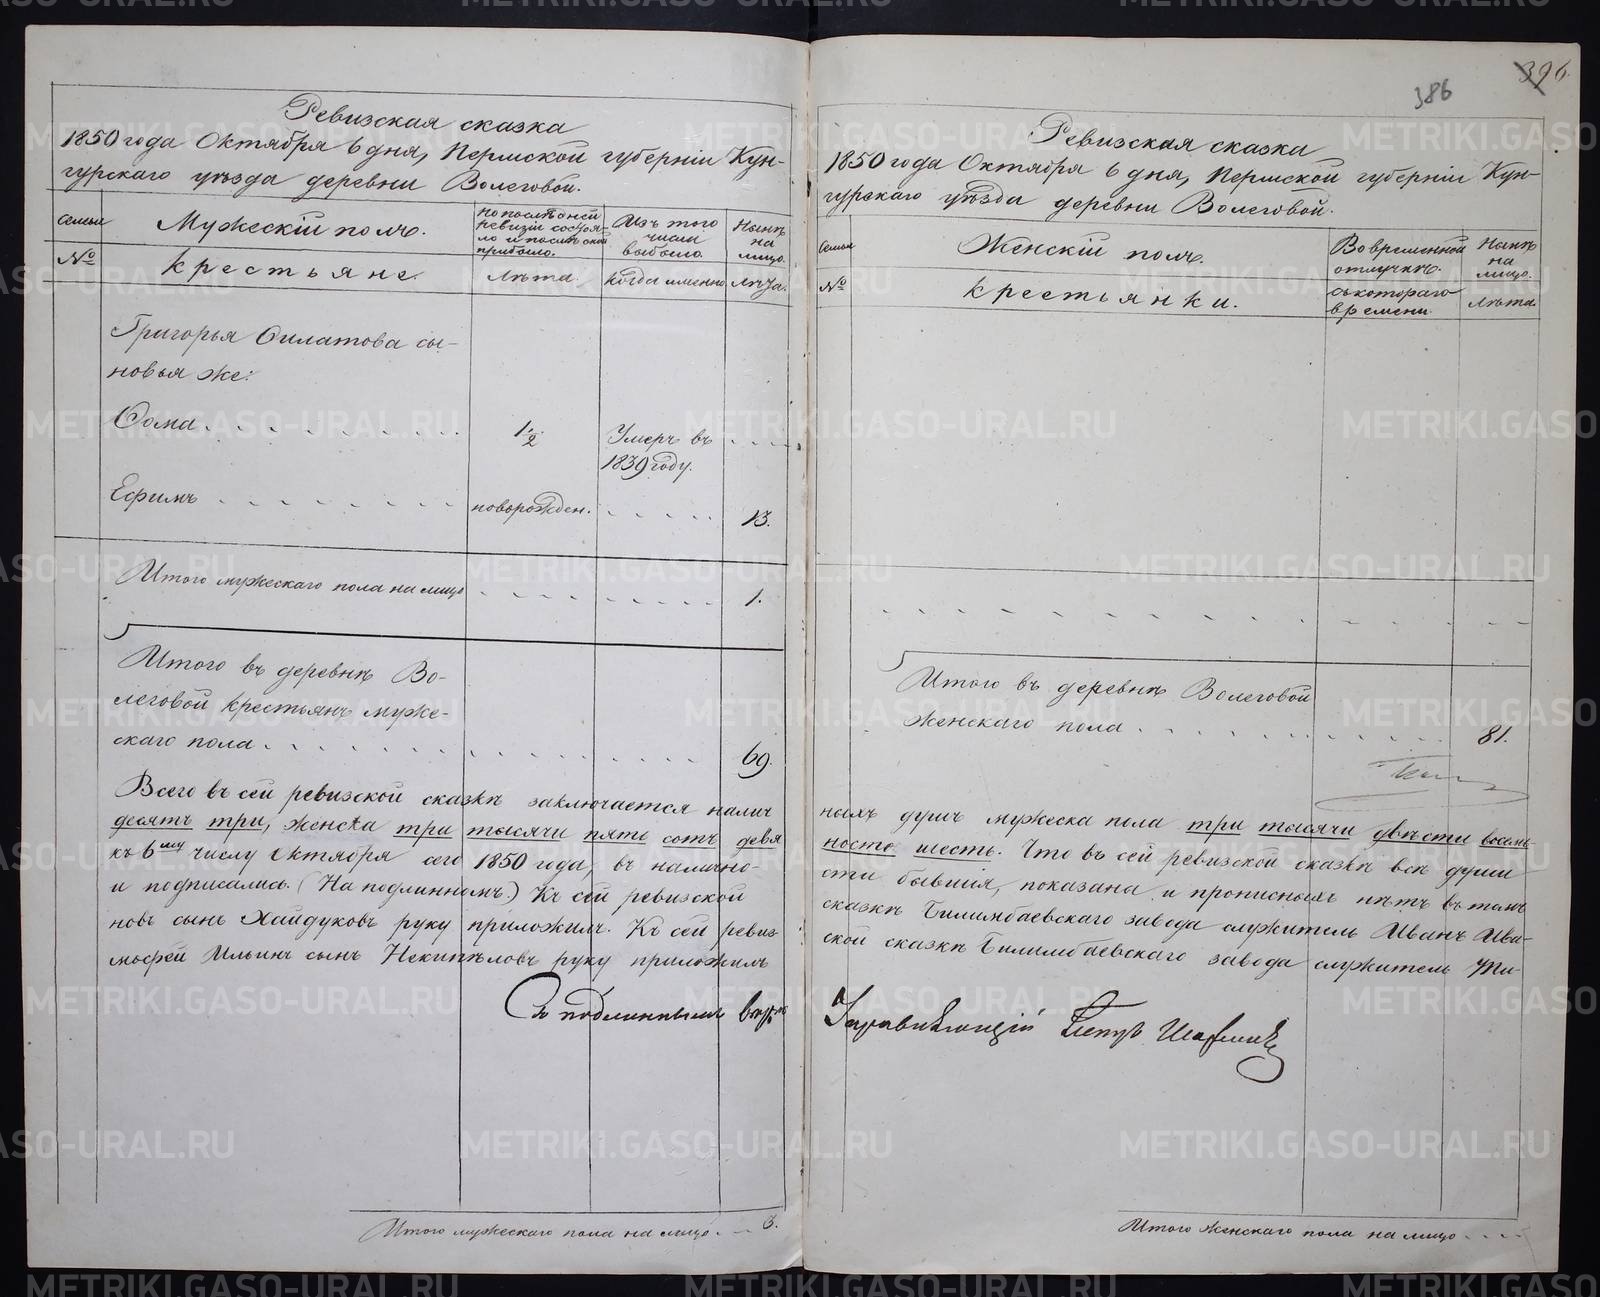 396.
386
Ревизская сказка
1850 года Октября 6 дня, Пермской губерніи Кун-
гурскаго уѣзда деревни Волеговой.
семьи
Мужескій полъ.
По послѣдней ревизіи состояло и послѣ оной прибыло.
Изъ того числа выбыло.
Нынѣ на лицо.
№
Крестьяне.
Лѣта.
когда именно
Лѣта.
Григорья Филатова сы-
новья же:
Фома
1/2
Умеръ въ
1839 году.
Ефимъ
новорожден.
13.
Итого мужескаго пола на лицо
1.
Итого въ деревнѣ Во-
леговой крестьянъ муже-
скаго пола
69.
Всего въ сей ревизской сказкѣ заключается налич
десятъ три, женска три тысячи пять сотъ девя
къ 6му числу Октября сего 1850 года, въ налично-
и подписались. (На подлинномъ.) Къ сей ревизской
новъ сынъ Хайдуковъ руку приложилъ. Къ сей ревиз
мофей Ильинъ сынъ Некипѣловъ руку приложилъ
Съ подлиннымъ вѣрно
Итого мужескаго пола на лицо
3.
Ревизская сказка
1850 года Октября 6 дня, Пермской губерніи Кун-
гурскаго уѣзда деревни Волеговой.
семьи
Женскій полъ.
Во временной отлучкѣ.
Нынѣ на лицо.
№
Крестьянки.
съ котораго времени.
Лѣта
Итого въ деревнѣ Волеговой
женскаго пола
81.
ныхъ душъ мужеска пола три тысячи двѣсти восемь
носто шесть. Что въ сей ревизской сказкѣ всѣ души
сти бывшія, показана и прописныхъ нѣтъ въ томъ
сказкѣ Билимбаевскаго завода служитель Иванъ Ива-
ской сказкѣ Билимбаевскаго завода служитель Ти-
Управляющій Петръ
Итого женскаго пола на лицо
METRIKI.GASO-URAL.RU